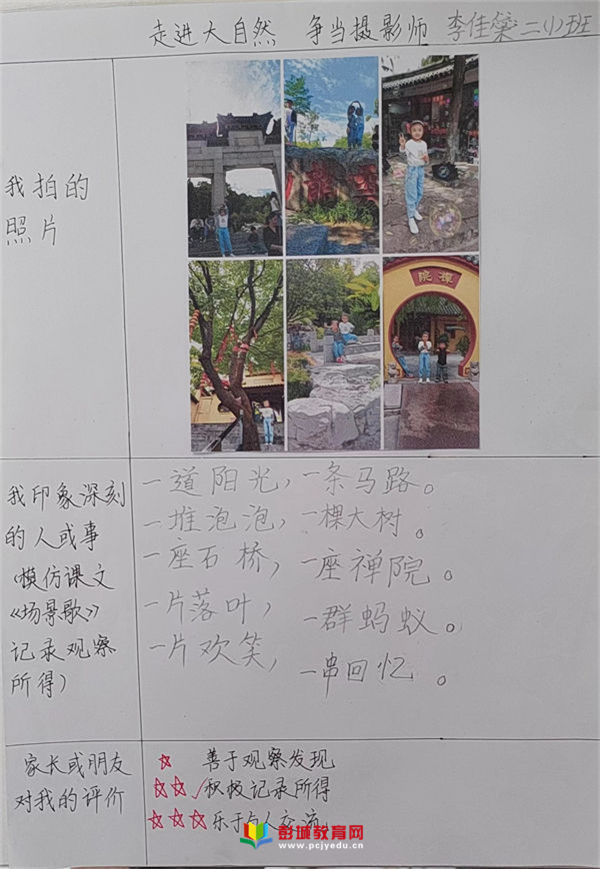 走进大自然 争当摄影师 李佳荣二(1)班
我拍的
照片
禅院
我印象深刻
的人或事
(模仿课文
《场景歌》
记录观察
所得)
一道阳光,一条马路。
一堆泡泡,一棵大树。
一座石桥,一座禅院。
一片落叶,一群蚂蚁。
一片欢笑,一串回忆。
家长或朋友
对我的评价
☆ 善于观察发现
☆☆✓积极记录所得
☆☆☆乐于与人交流
彭城教育网
www.pcjyedu.cn